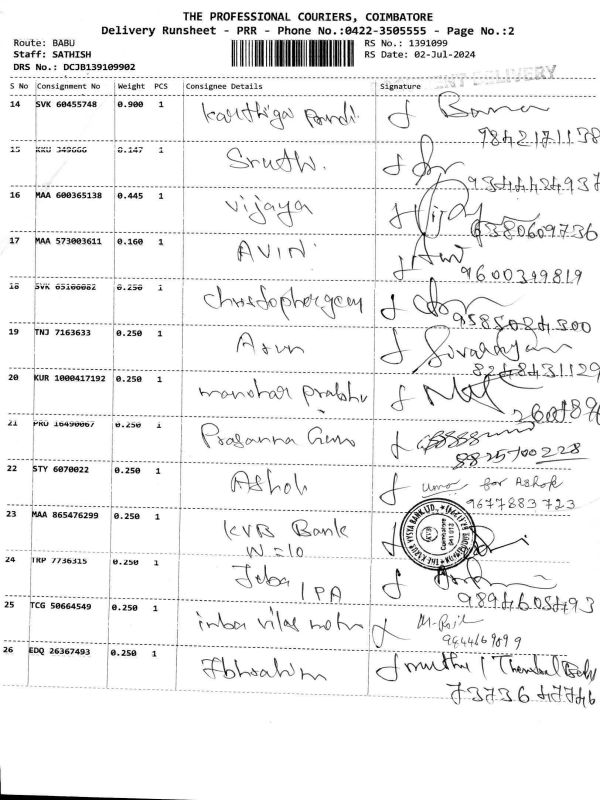 THE PROFESSIONAL COURIERS, COIMBATORE
Delivery Runsheet - PRR - Phone No.:0422-3505555 - Page No.:2
Route: BABU
Staff: SATHISH
DRS No.: DCJB139109902
RS No.: 1391099
RS Date: 02-Jul-2024
S No Consignment No Weight PCS Consignee Details Signature
14 SVK 60455748 0.900 1
9842171138
15 0.147 1 Sruthi.
9344424937
16 MAA 600365138 0.445 1 vijaya Vijay
6380609736
17 MAA 573003611 0.160 1 AVINI
9600349819
18 SVK 65166082 0.250 1
9585084300
19 TNJ 7163633 0.250 1 Arun
8248431129
20 KUR 1000417192 0.250 1 manohar prabhu
21 PRO 16490067 0.250 1 Prasanna
8825700228
22 STY 6070022 0.250 1 Ashok uma for Ashok
9677883723
23 MAA 865476299 0.250 1 KVB Bank
W=10
24 TRP 7736315 0.250 1 Jeba / PA
9894605493
25 TCG 50664549 0.250 1 inba vilas
26 EDQ 26367493 0.250 1 Ibhrahim muthu /
73736 47746